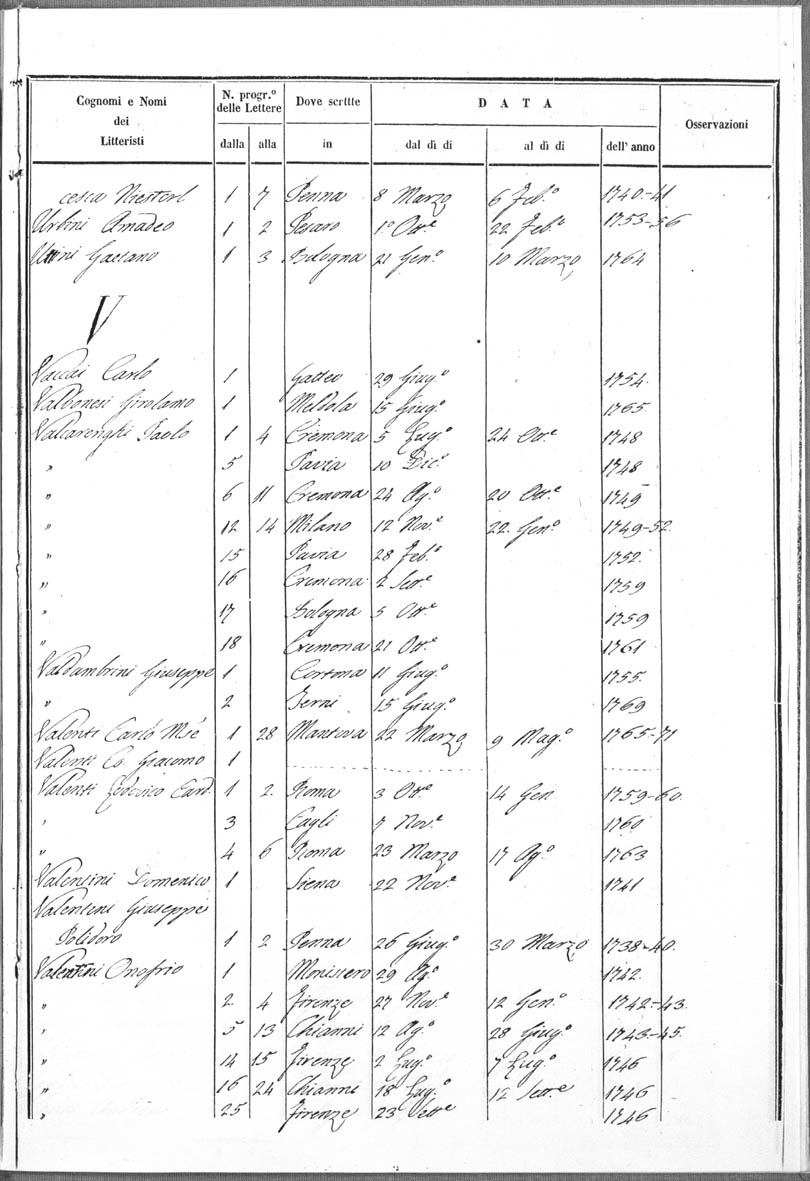 Cognomi e Nomi dei Litteristi | N. progr.º delle Lettere | Dove scrtte | DATA | Osservazioni
dalla | alla | in | dal dì di | al dì di | dell' anno
cesca 1 7 Penna 8 Marzo 6 Feb.º 1740-41
Urbini Amadeo 1 2 Pesaro 1º Ott.e 22 Feb.º 1753-56
Gaetano 1 3 Bologna 21 Gen.º 10 Marzo 1764
V
Vaccai Carlo 1 Gatteo 29 Giug.º 1754.
Valbonesi Girolamo 1 Meldola 15 Giug.º 1765
Valcarenghi Paolo 1 4 Cremona 5 Lug.º 24 Ott.e 1748
" 5 Pavia 10 Dic.e 1748
" 6 11 Cremona 24 Ag.º 20 Ott.e 1749
" 12 14 Milano 12 Nov.e 22. Gen.º 1749-52.
" 15 Pavia 28 Feb.º 1752.
" 16 Cremona 2 Sett.e 1759
" 17 Bologna 5 Ott.e 1759
" 18 Cremona 21 Ott.e 1761
Valdambrini Giuseppe 1 Cortona 11 Giug.º 1755.
" 2 Terni 15 Giug.º 1769
Valenti Carlo M.se 1 28 Mantova 22 Marzo 9 Mag.º 1765-71
Valenti Co. Giacomo 1
Valenti Lodovico Card. 1 2 Roma 3 Ott.e 14 Gen 1759-60.
" 3 Cagli 7 Nov.e 1760
" 4 6 Roma 23 Marzo 17 Ag.º 1763
Valentini Domenico 1 Siena 22 Nov.e 1741
Valentini Giuseppe
Polidoro 1 2 Penna 26 Giug.º 30 Marzo 1738-40.
Valentini Onofrio 1 29 Ag.º 1742.
" 2 4 Firenze 27 Nov.e 12 Gen.º 1742-43.
" 5 13 Chianni 12 Ag.º 28 Giug.º 1743-45.
" 14 15 Firenze 2 Lug.º 7 Lug.º 1746
" 16 24 Chianni 18 Lug.º 12 Sett.e 1746
" 25 Firenze 23 Sett.e 1746